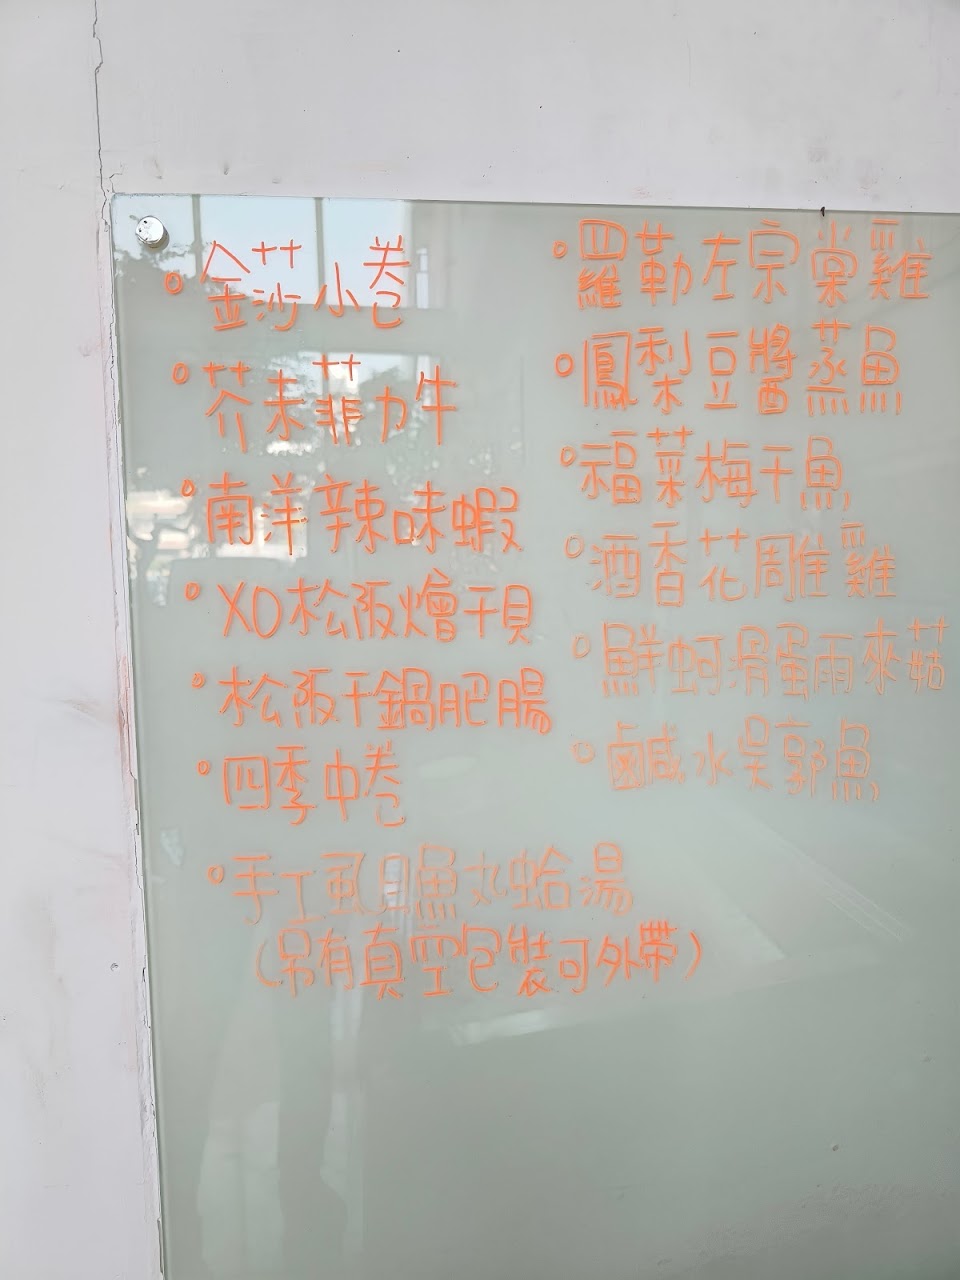 。金莎小卷
。芥末菲力牛
。南洋辣味蝦
。XO松阪燴干貝
。松阪干鍋肥腸
。四季中卷
。手工虱目魚丸蛤湯
(另有真空包裝可外帶)
。羅勒左宗棠雞
。鳳梨豆醬蒸魚
。福菜梅干魚
。酒香花雕雞
。鮮蚵滑蛋雨來菇
。鹹水吳郭魚